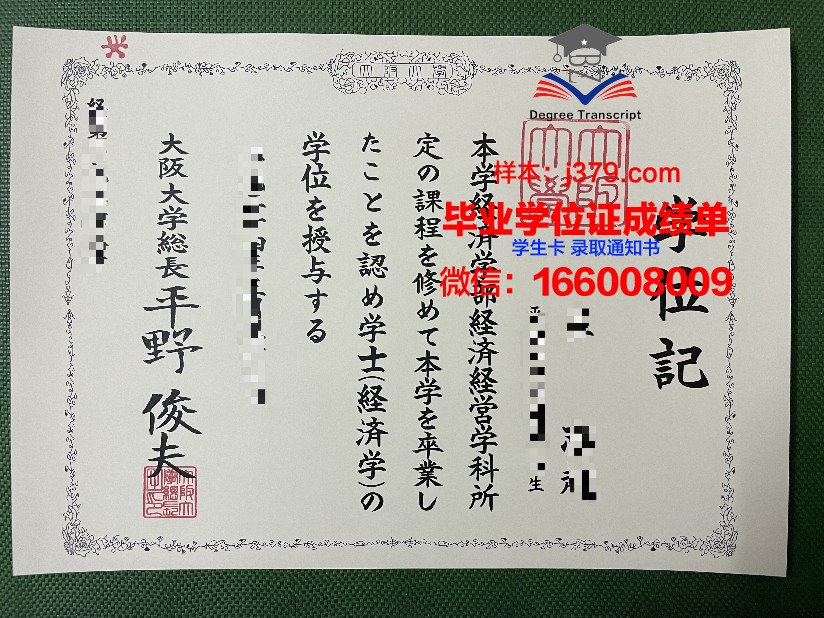 Degree Transcript
样本：j379.com
毕业学位证成绩单
学生卡 录取通知书
微信：166008009
学位記
生
本学経済学部経済経営学科所
定の課程を修めて本学を卒業し
たことを認め学士(経済学)の
学位を授与する
大阪大学総長 平野俊夫